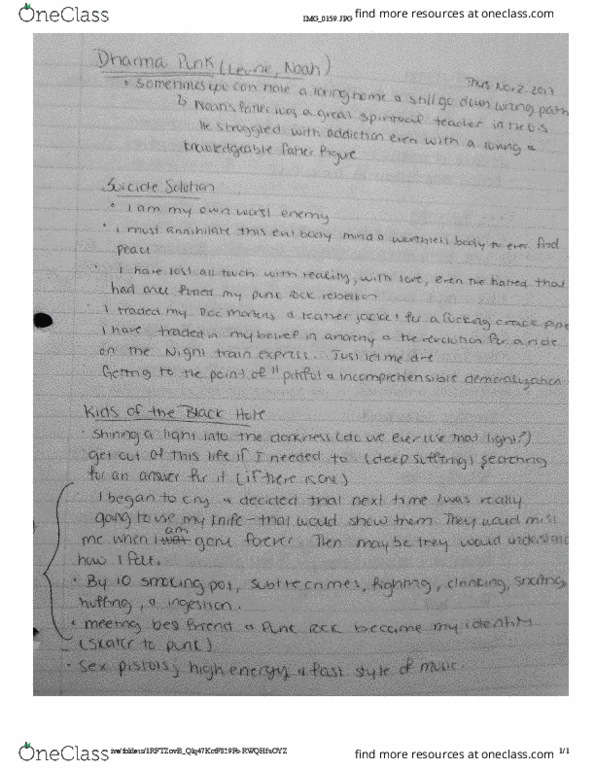 OneClass
IMG_0159.JPG
find more resources at oneclass.com
Dharma Punk (Levine, Noah)
Thurs Nov 2. 2017
• Sometimes you can have a loving home & still go down wrong path
↳ Noah's father was a great spiritual teacher in the U.S
He struggled with addiction even with a loving &
knowledgeable father figure
Suicide Solution
• I am my own worst enemy
• I must annihilate this evil body mind & worthless body to ever find
peace
• I have lost all touch with reality, with love, even the hatred that
had once fueled my punk rock rebellion
• I traded my Doc martens & leather jacket for a fucking crack pipe
I have traded in my belief in anarchy & the revolution for a ride
on the Night train express. Just let me die
Getting to the point of "pitiful & incomprehensible demoralization
Kids of the Black Hole
• Shining a light into the darkness (do we ever use that light?)
get out of this life if I needed to (deep suffering) searching
for an answer for it (if there is one)
I began to cry & decided that next time I was really
going to use my knife - that would show them. They would miss
me when I am gone forever. Then maybe they would understand
how I felt.
• By 10 smoking pot, subtle crimes, fighting, drinking, snorting,
huffing, & ingestion.
• meeting best friend & Punk rock became my identity
(skater to punk)
• Sex pistols, high energy & fast style of music.
OneClass
find more resources at oneclass.com
1/1